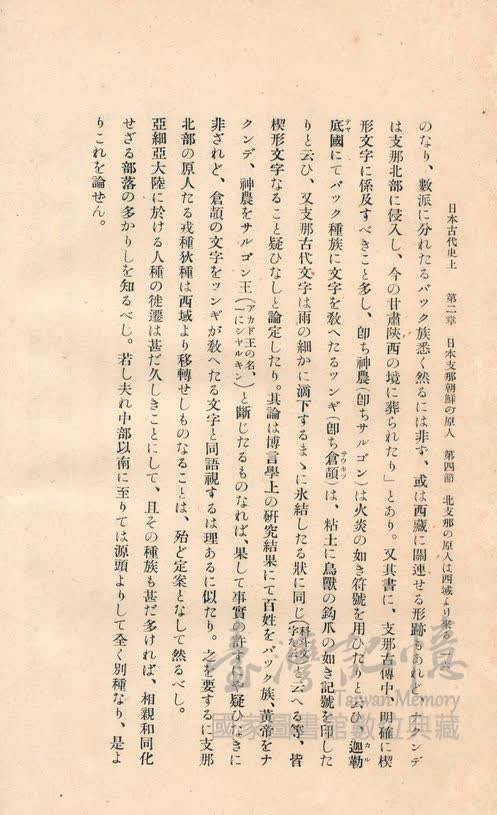 日本古代史上　第二章　日本支那朝鮮の原人　第四節　北支那の原人は西域より來る
のなり、數派に分れたるバック族悉く然るには非ず、或は西藏に關連せる形跡もあれど、ナクンデ
は支那北部に侵入し、今の甘肅陝西の境に葬られたり」とあり。又其書に、支那古傳中、明確に楔
形文字に係及すべきこと多し、卽ち神農(卽ちサルゴン)は火炎の如き符號を用ひたりと云ひ、迦勒
底國にてバック種族に文字を敎へたるツンギ(卽ち倉頡)は、粘土に鳥獸の鈎爪の如き記號を印した
りと云ひ、又支那古代文字は雨の細かに滴下するまゝに氷結したる狀に同じ(科斗文字を云)と云へる等、皆
楔形文字なること疑ひなしと論定したり。其論は博言學上の硏究結果にて百姓をバック族、黃帝をナ
クンデ、神農をサルゴン王(アカド王の名、一にシヤルキン)と斷じたるものなれば、果して事實の許すや疑ひなきに
非ざれど、倉頡の文字をツンギが敎へたる文字と同語視するは理あるに似たり。之を要するに支那
北部の原人たる戎種狄種は西域より移轉せしものなることは、殆ど定案となして然るべし。
亞細亞大陸に於ける人種の徙遷は甚だ久しきことにして、且その種族も甚だ多ければ、相親和同化
せざる部落の多かりしを知るべし。若し夫れ中部以南に至りては源頭よりして全く別種なり、是よ
りこれを論せん。
カル
テヤ
サウキツ
臺灣記憶
Taiwan Memory
國家圖書館數位典藏